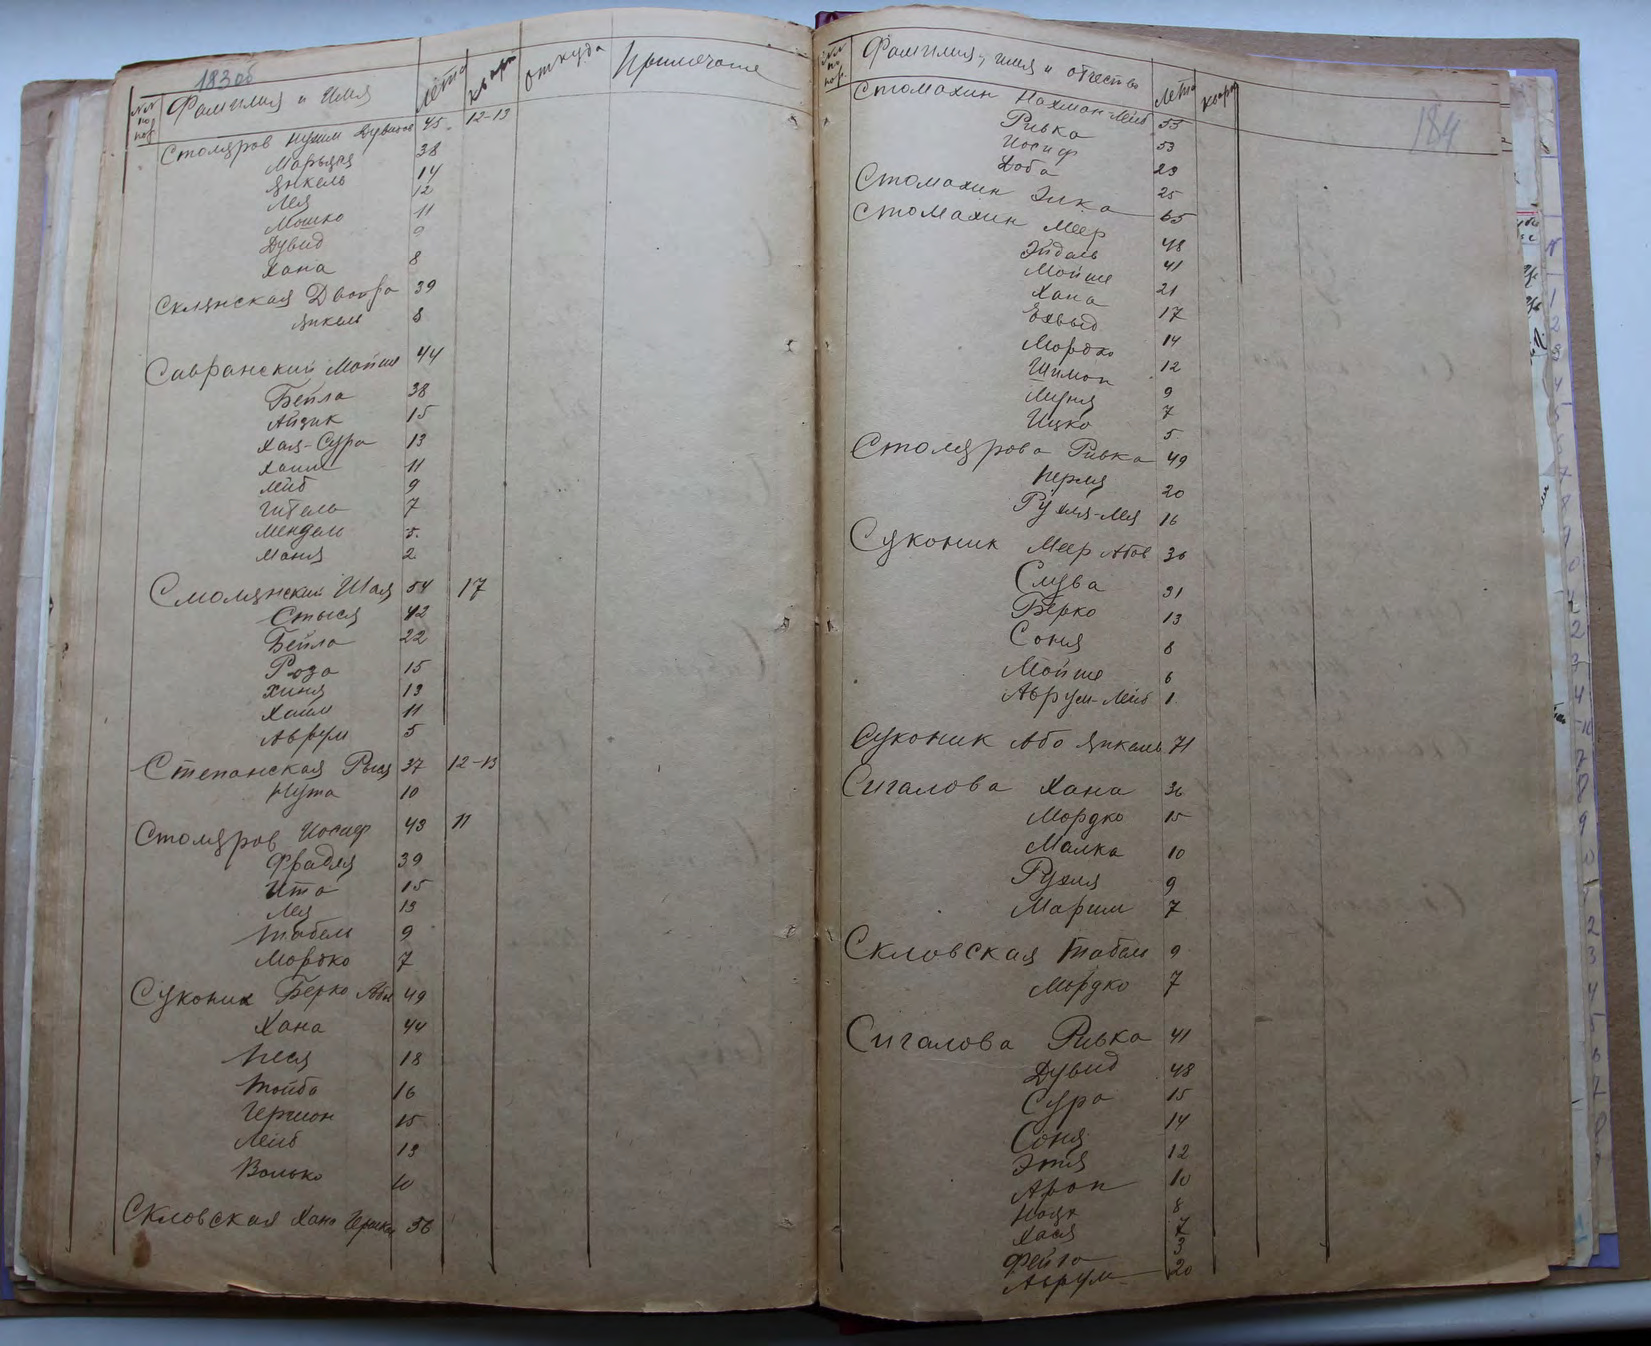 183 об
№№ по пор. Фамилия и Имя Лета кварт откуда Примечание
Столяров Нухим Дувидов 45 12-13
Марьяся 38
Янкель 14
Лея 12
Мошко 11
Дувид 9
Хана 8
Склянская Двойра 39
Янкель 8
Савранский Мойше 44
Бейла 38
Айзик 15
Хая-Сура 13
Хаим 11
Лейб 9
Гитель 7
Мендель 5
Маня 2
Смолянский Шая 54 17
Стыся 42
Бейла 22
Роза 15
Хиня 13
Хаим 11
Аврум 5
Степанская Рыся 37 12-13
Нута 10
Столяров Иосиф 43 11
Фрадля 39
Ита 15
Лея 13
Шабель 9
Мордко 7
Суконик Берко Абов 49
Хана 44
Песя 18
Тойба 16
Гершон 15
Лейб 13
Волько 10
Скловская Хана 56
184
№№ по пор. Фамилия, имя и отчество Лета кварт
Стомахин Нахман Лейб 55
Ривка 53
Иосиф 29
Доба 25
Стомахин Элка 65
Стомахин Меер 48
Эйдель 41
Мойше 21
Хана 17
Мордко 14
Шимон 12
9
Ицко 7
5
Столярова Ривка 49
Перля 20
Рухля-Лея 16
Суконик Меер Абов 36
Слува 31
Берко 13
Соня 8
Мойше 6
Аврум-Лейб 1
Суконик Або Янкель 71
Сигалова Хана 36
Мордко 15
Малка 10
Рухля 9
Марим 7
Скловская Табель 9
Мордко 7
Сигалова Ривка 41
Дувид 48
Сура 15
Соня 14
Этля 12
Арон 10
8
Хася 7
Фейга 3
Аврум 20